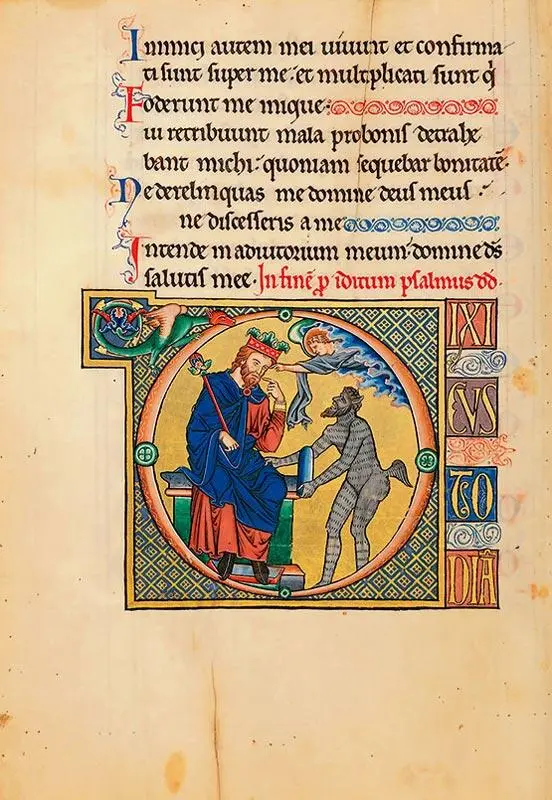 Inimicj autem mei uiuunt et confirma
ti sunt super me et multiplicati sunt q̇
Foderunt me inique
ui retribuunt mala pro bonis detrahe
bant michi quoniam sequebar bonitatē.
Ne derelinquas me domine deus meus
ne discesseris a me
Intende in adiutorium meum domine dš
salutis mee. In finē ꝑ iditum psalmus dd.
DIXI
CUS
TO
DIĀ